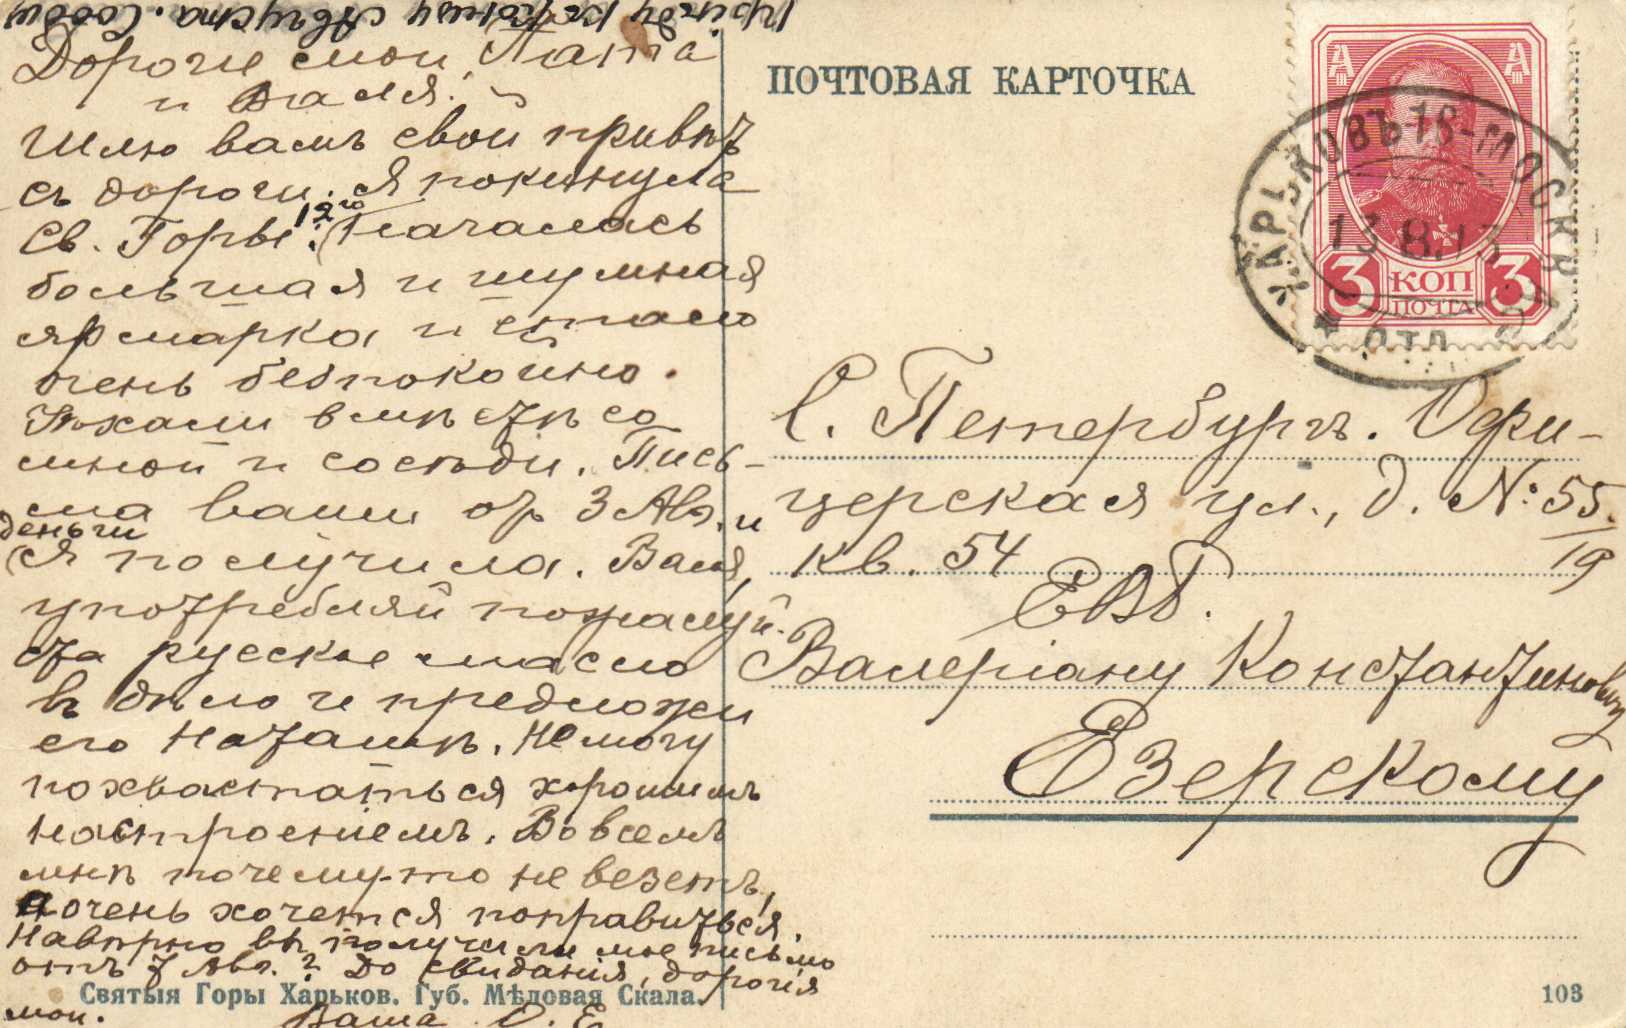 Пріѣду къ концу Августа. Сообщу
Дорогіе мои, Папа
и Валя.
Шлю вамъ свой привѣтъ
съ дороги. Я покинула
Св. Горы 12го. Началась
большая и шумная
ярмарка и стало
очень безпокойно.
Ѣхали вмѣстѣ со
мной и сосѣди. Пись-
ма ваши от 3 Авг. и
деньги
я получила. Валя,
употребляй пожалуй-
ста русское масло
въ дѣло и предложи
его Наташѣ. Не могу
похвастаться хорошимъ
настроеніемъ. Во всемъ
мнѣ почему-то не везетъ,
а очень хочется поправиться.
Навѣрно вы получили мое письмо
отъ 7 Авг.? До свиданія, дорогія
мои. Ваша О. Е.
Святыя Горы Харьков. Губ. Мѣловая Скала.
ПОЧТОВАЯ КАРТОЧКА
3 КОП 3
ПОЧТА
ХАРЬКОВЪ-18-МОСКВА
13.8.13
ОТД. 2
С. Петербургъ. Офи-
церская ул., д. №: 55/19
кв. 54
ЕВБ.
Валеріану Константиновичу
Езерскому
103